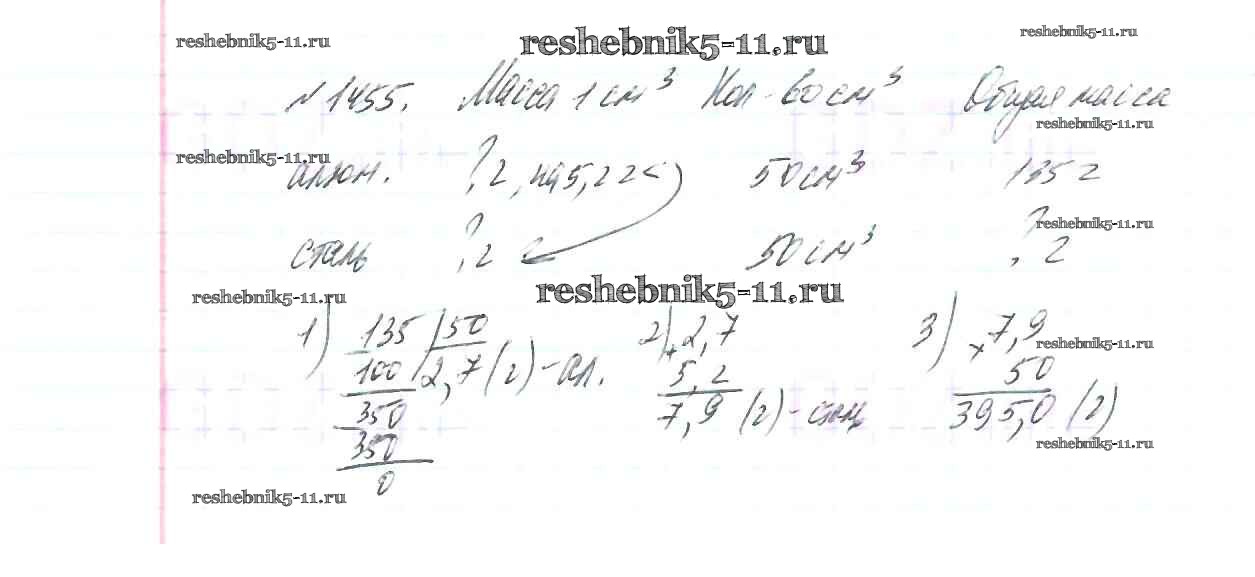 reshebnik5-11.ru reshebnik5-11.ru reshebnik5-11.ru
№1455. Масса 1 см³ Кол-во см³ Общая масса
reshebnik5-11.ru
reshebnik5-11.ru
алюм. ? г, на 5,2 г < 50 см³ 135 г
reshebnik5-11.ru
сталь ? г 50 см³ ? г
reshebnik5-11.ru reshebnik5-11.ru
1) 135 | 50 2) + 2,7 3) × 7,9
reshebnik5-11.ru
100 | 2,7 (г) - ал. 5,2 50
350 7,9 (г) - 395,0 (г)
350 reshebnik5-11.ru
0
reshebnik5-11.ru